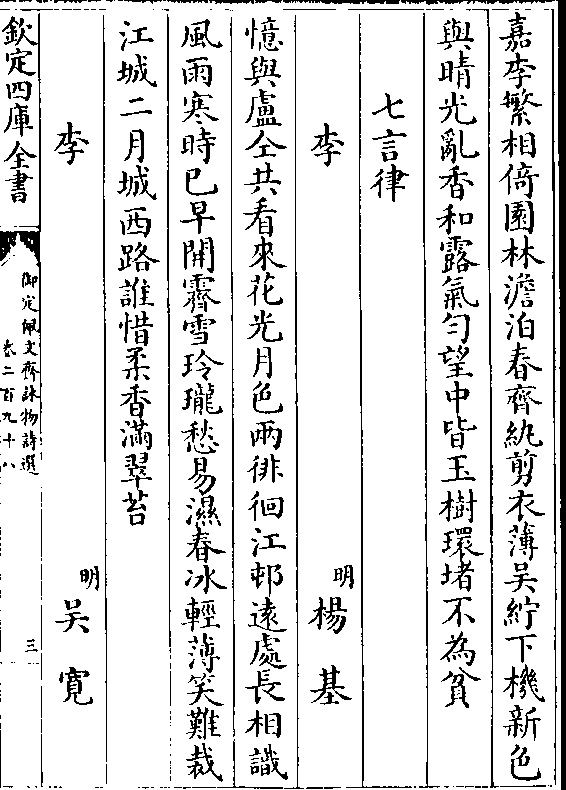 嘉李繁相倚園林澹泊春齊紈剪衣薄吳紵下機新色
與晴光亂香和露氣勻望中皆玉樹環堵不為貧
七言律
李 明 楊基
憶與盧仝共看來花光月色兩徘徊江邨遠處長相識
風雨寒時已早開霽雪玲瓏愁易濕春冰輕薄笑難裁
江城二月城西路誰惜柔香滿翠苔
李 明 吳寬
欽定四庫全書
御定佩文齋詠物詩選
卷二百九十八
三